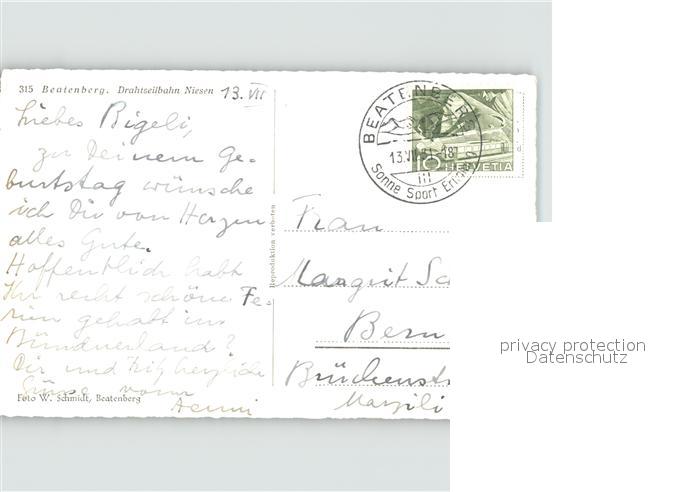 315 Beatenberg. Drahtseilbahn Niesen 13. VII
Liebes Bigeli,
zu Deinem Ge-
burtstag wünsche
ich Dir von Herzen
alles Gute.
Hoffentlich habt
Ihr recht schöne Fe-
rien gehabt im
Bündnerland?
Dir und Fritz herzliche
Grüsse vom
Aenni
Foto W. Schmidt, Beatenberg
Reproduktion verboten
BEATENBERG
13.VII
Sonne Sport
10 HELVETIA
Frau
Margrit Sc
Bern
Brückenst
Marzili
privacy protection
Datenschutz